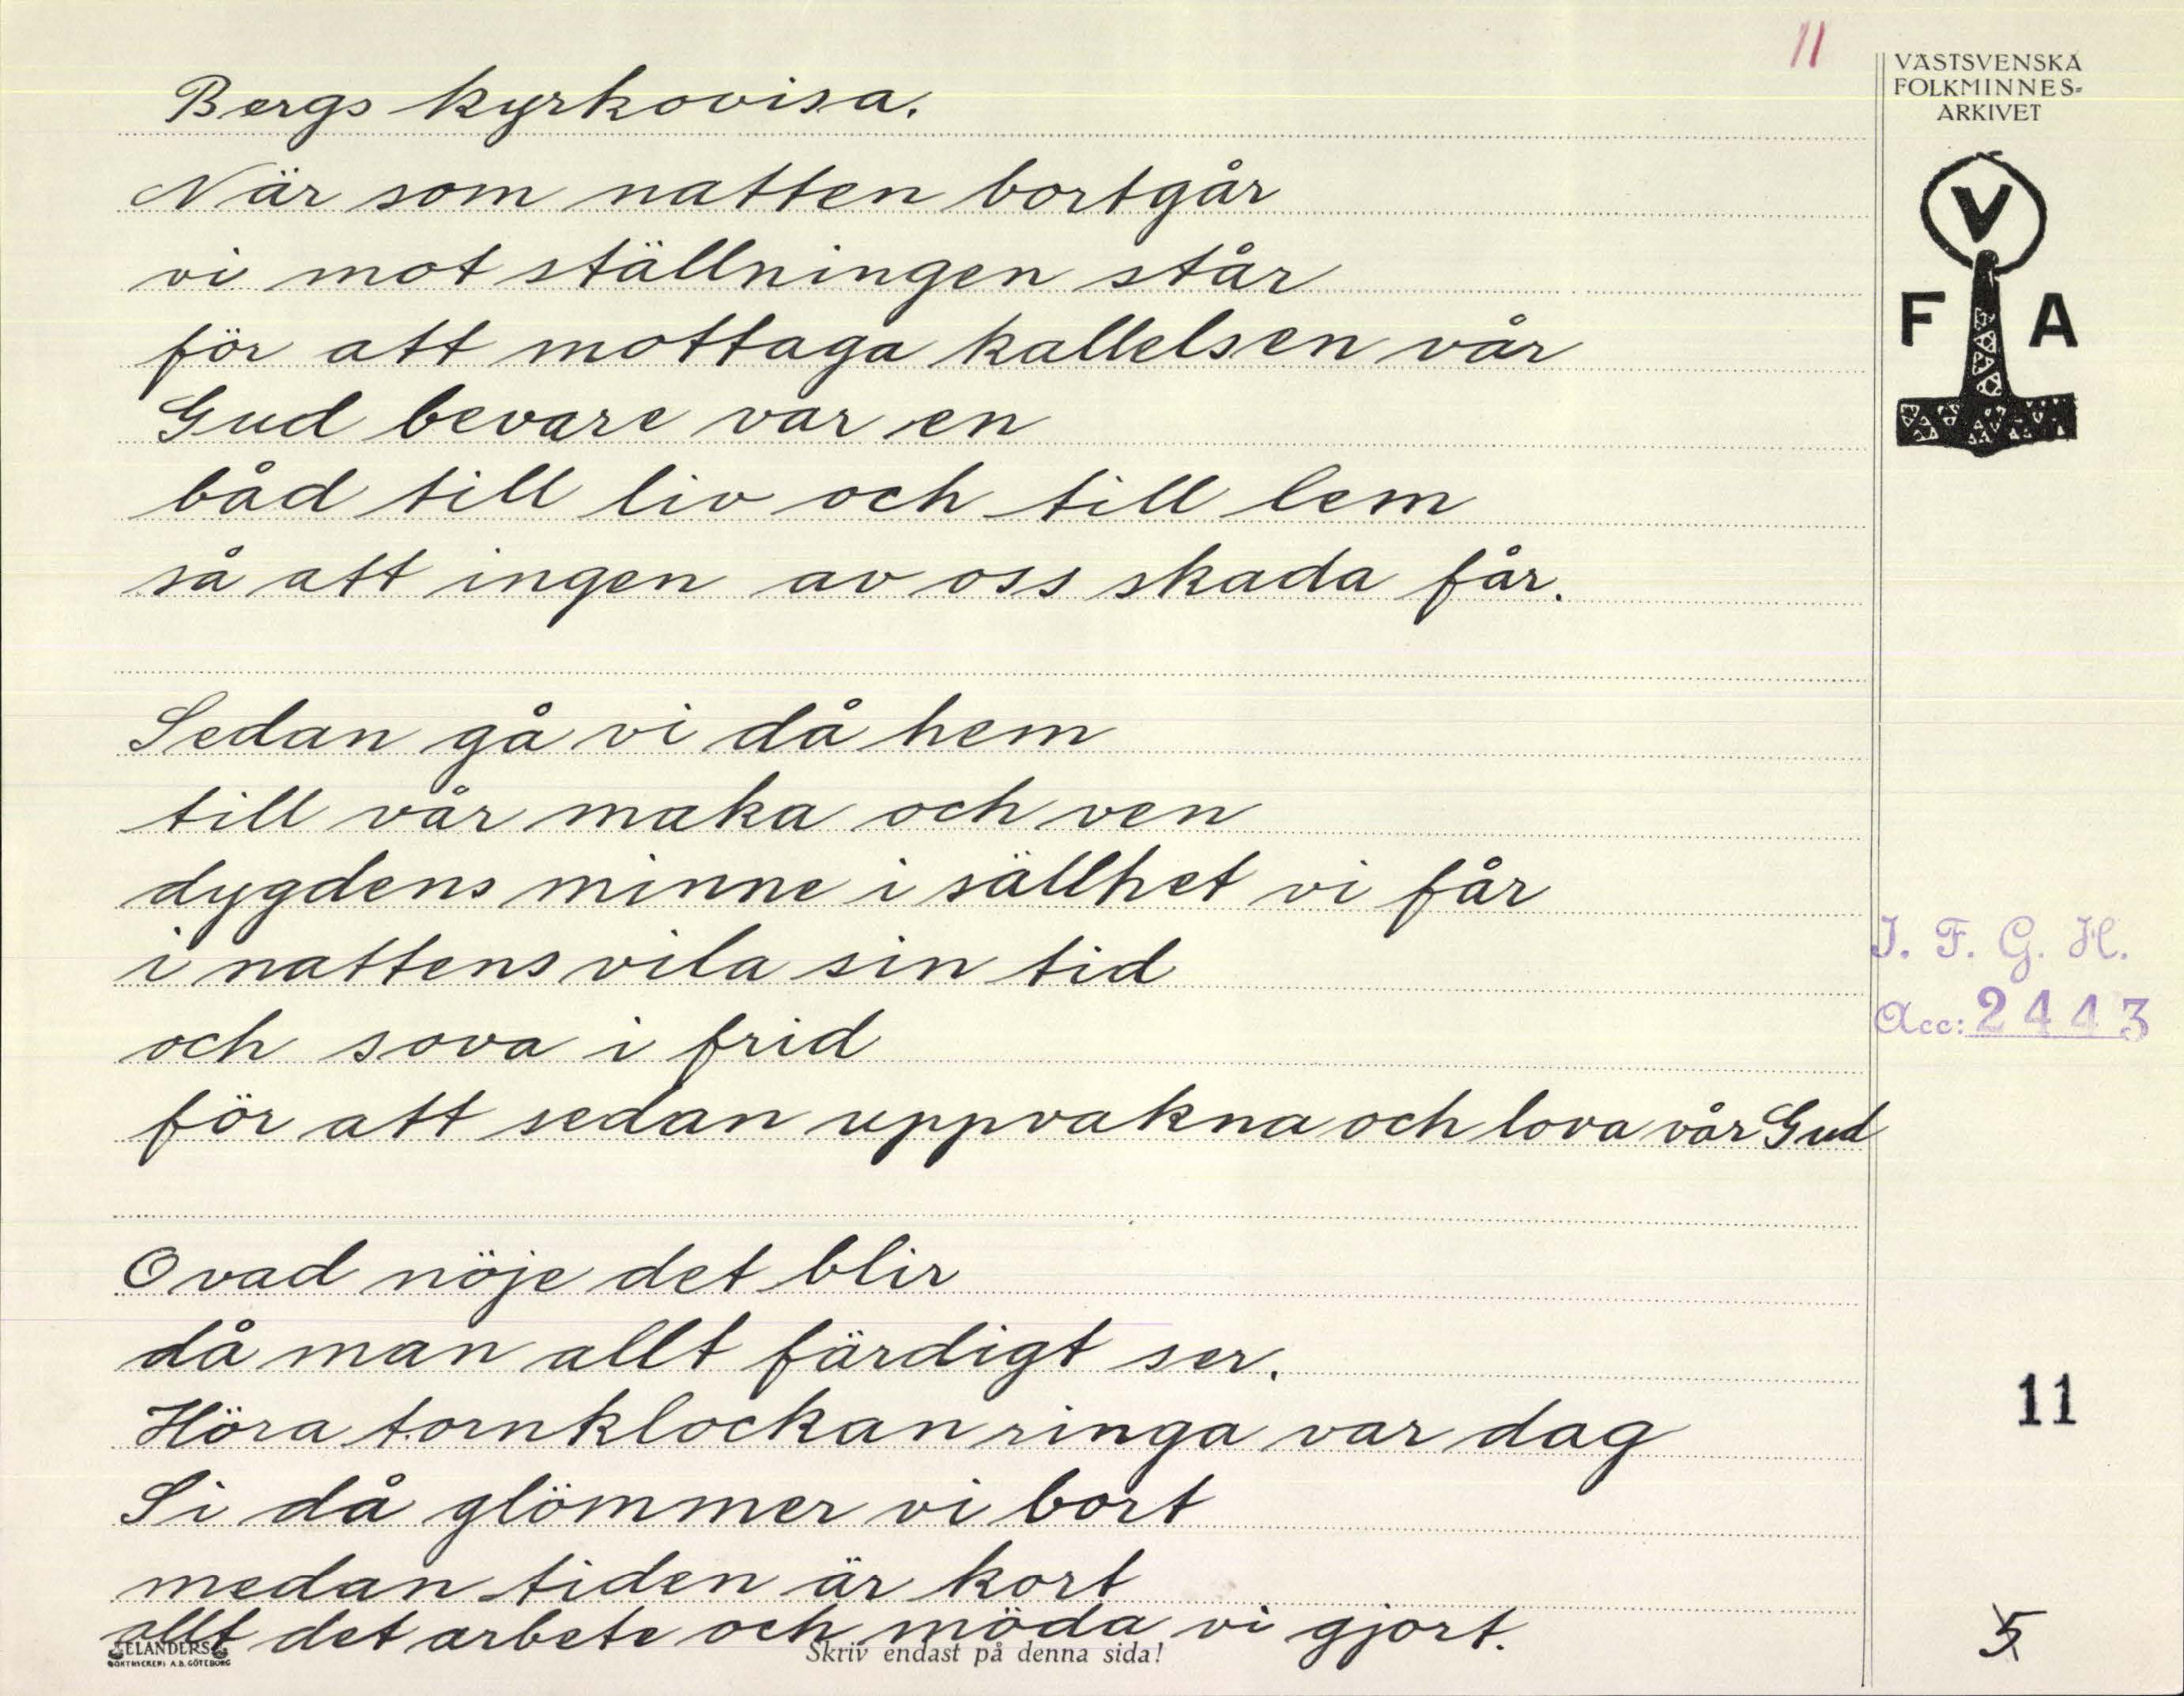 11
VÄSTSVENSKA
FOLKMINNES-
ARKIVET
V
F A
Bergs kyrkovisa.
När som natten bortgår
vi mot ställningen står
för att mottaga kallelsen vår
Gud bevare var en
båd till liv och till lem
så att ingen av oss skada får.
Sedan gå vi då hem
till vår maka och ven
dygdens minne i sällhet vi får
i nattens vila sin tid
och sova i frid
för att sedan uppvakna och lova vår Gud
O vad nöje det blir
då man allt färdigt ser.
Höra tornklockan ringa var dag
Si då glömmer vi bort
medan tiden är kort
allt det arbete och möda vi gjort.
I. F. G. H.
Acc: 2443
11
5
ELANDERS
BOKTRYCKERI A.B. GÖTEBORG
Skriv endast på denna sida!